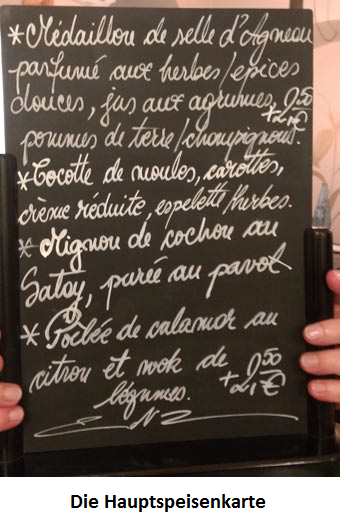 *Médaillon de selle d'Agneau
parfumé aux herbes/épices
douces, jus aux agrumes,
pommes de terre/champignons.
*Cocotte de moules, carottes,
crème réduite, espelette/herbes.
*Mignon de cochon au
Satay, purée au pavot
*Poêlée de calamar au
citron et wok de
légumes.
Die Hauptspeisenkarte